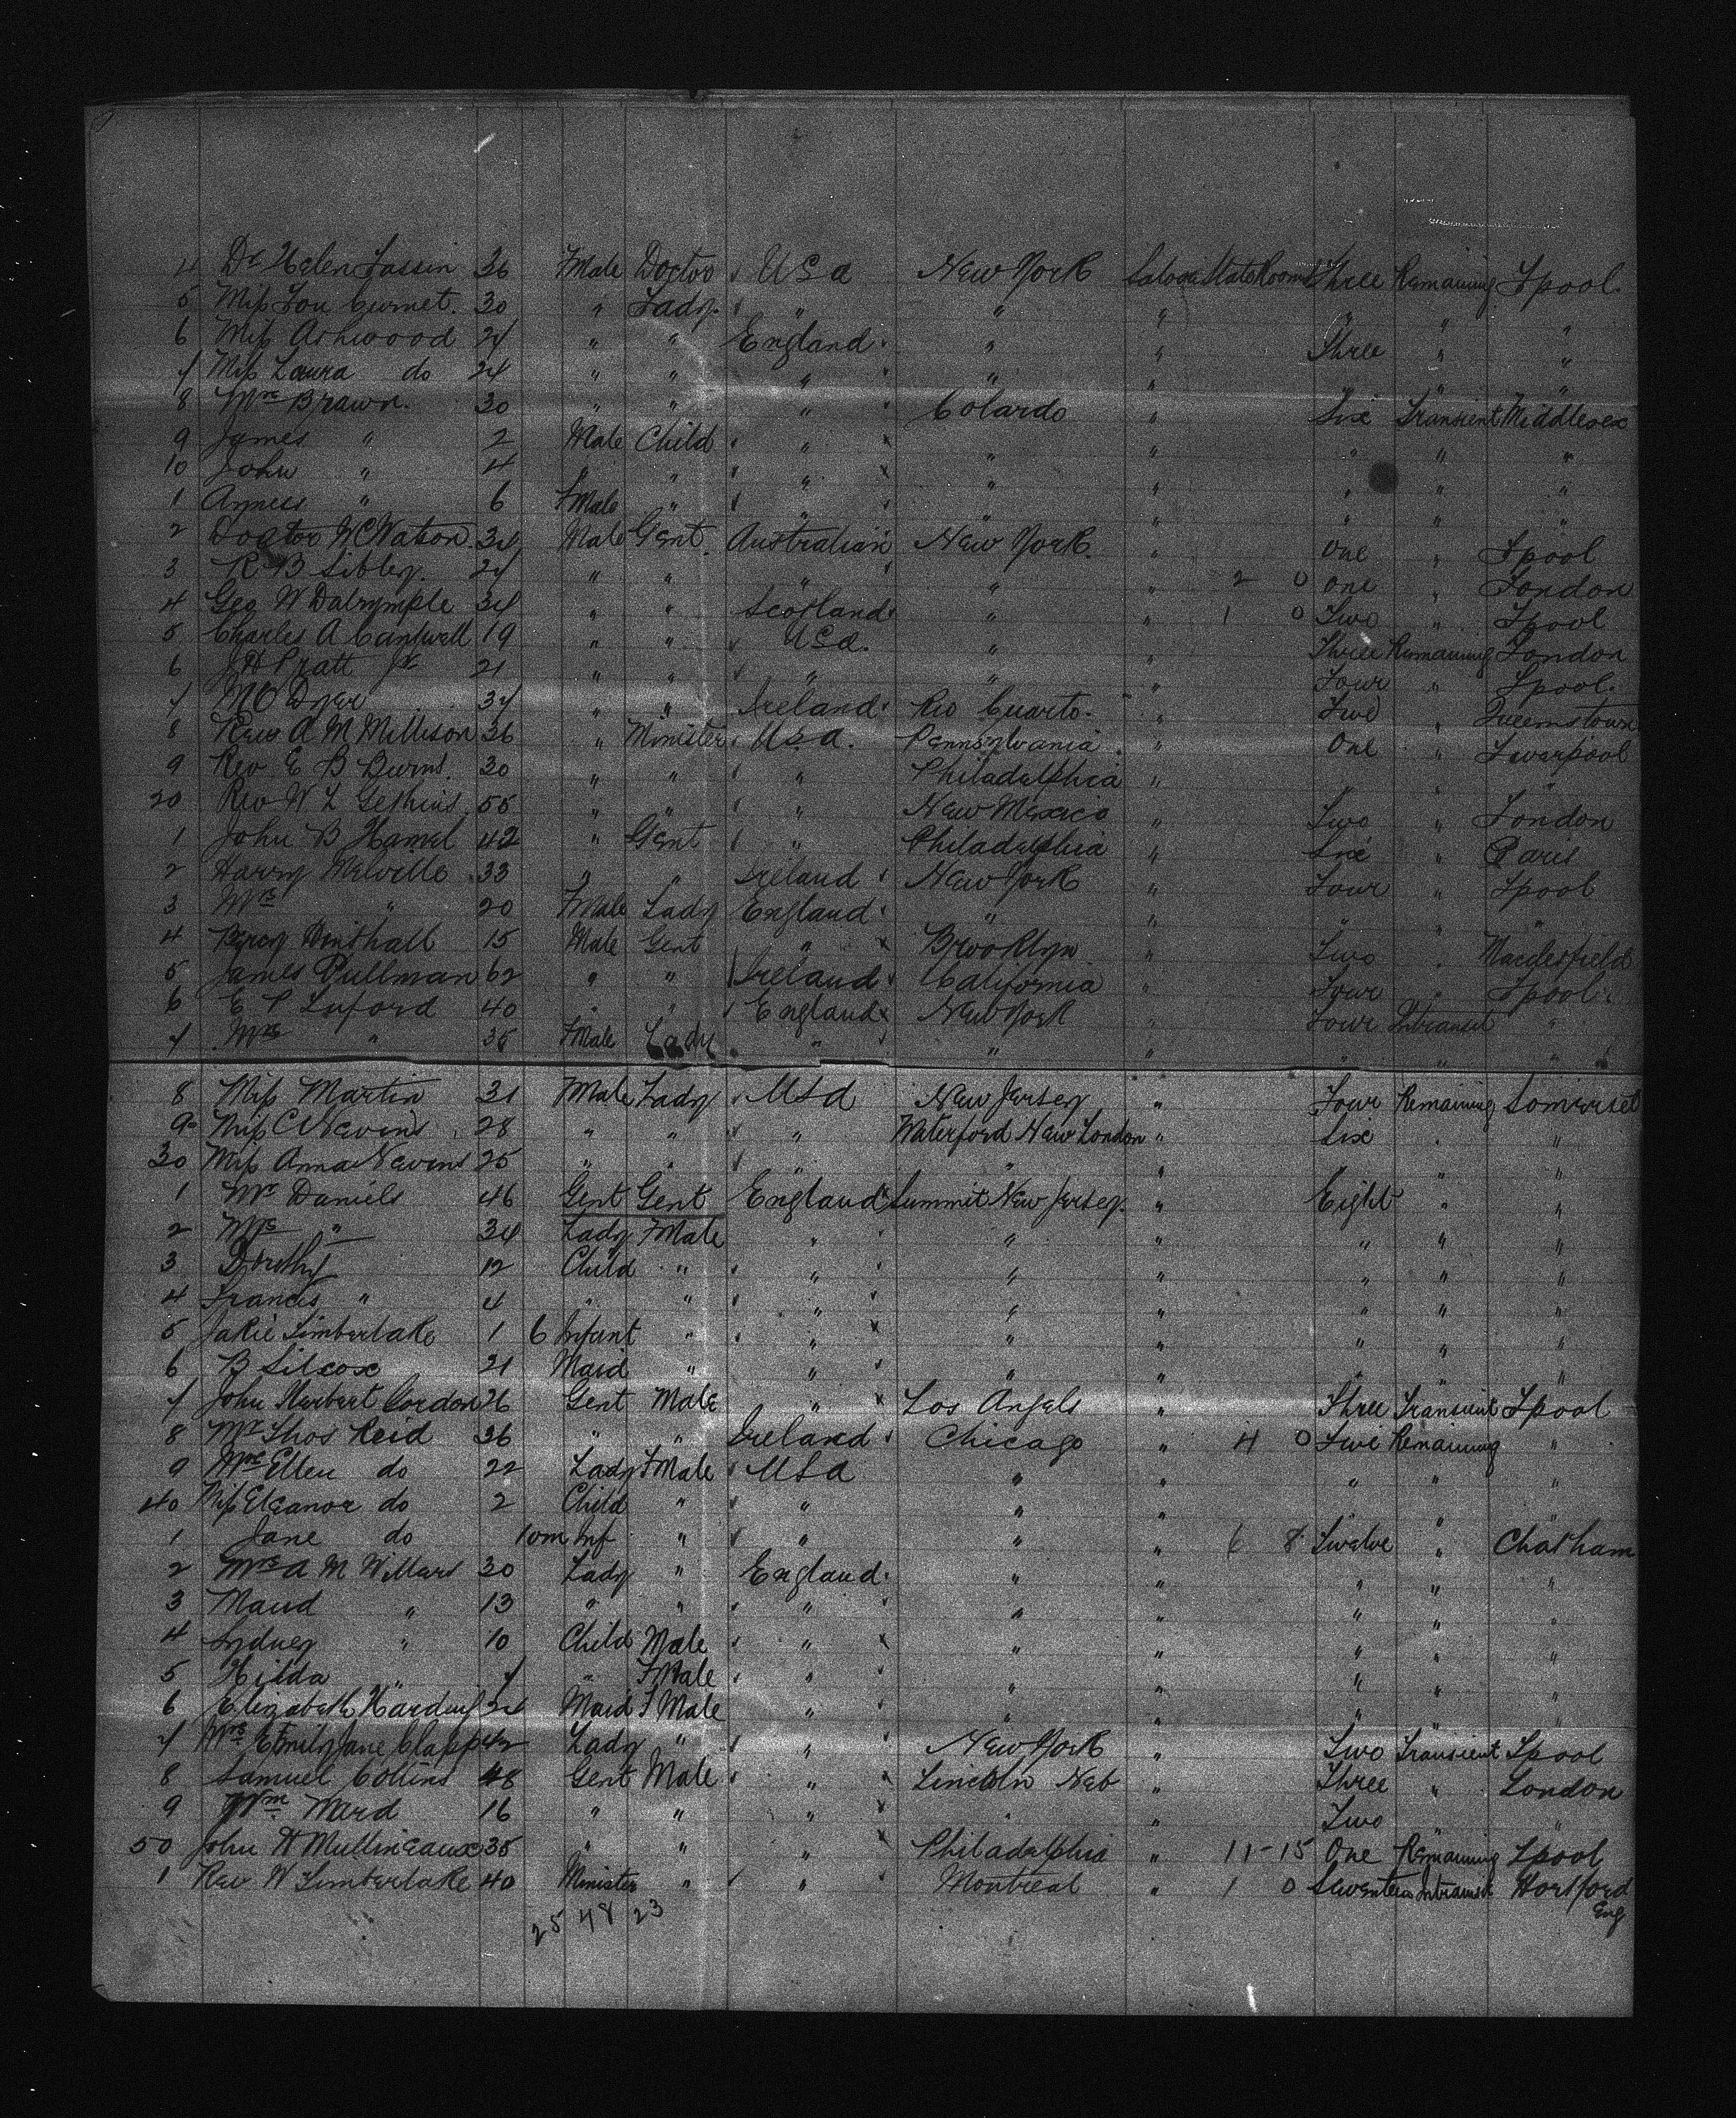 4 Dr Helen Lassen 36 Fmale Doctor U S a New York Saloon StateRooms Three Remaining Lpool.
5 Miss Lou Gurnet. 30 " Lady. " " " " " "
6 Miss Ashwood 24 " " England " " Three " "
7 Miss Laura do 24 " " " " " " "
8 Mrs Brawn. 30 " " " Colardo " Six Transient Middlesex
9 James " 2 Male Child " " " " " "
10 John " 4 " " " " " " " "
1 Agness " 6 Fmale " " " " " " "
2 Doctor W C Watson 34 Male Gent. Australian New York " One " Lpool
3 R B Sibley. 27 " " " " " 2 0 One " London
4 Geo W Dalrymple 34 " " Scotland " " 1 0 Two " Lpool
5 Charles A Cantwell 19 " " U S a. " " Three Remaining London
6 J H Pratt Jr 21 " " " " " Four " Lpool.
7 M O Dyer 37 " " Ireland Rio Cuarto. " Five " Queenstown
8 Rev A M Millison 36 " Minister U S a. Pennsylvania " One " Liverpool
9 Rev E B Burns. 30 " " " Philadelphia " " "
20 Rev W L Geshins. 55 " " " New Mexico " Two " London
1 John B Hamel 42 " Gent " Philadelphia " Six " Paris
2 Harry Melville 33 " " Ireland New York " Four " Lpool
3 Mrs " 20 Fmale Lady England " " " " "
4 Percy Hinshall 15 Male Gent " Brooklyn " Two " Macclesfield
5 James Pullman 62 " " Ireland California " Four " Lpool
6 E P Luford 40 " " England New York " Four Intransit "
7 Mrs " 35 Fmale Lady " " " " " "
8 Miss Martin 31 Fmale Lady U S a New Jersey " Four Remaining Somerset
9 Miss C Nevins 28 " " " Waterford New London " Six " "
30 Miss Anna Nevins 25 " " " " " " " "
1 Mr Daniels 46 Gent Gent England Summit New Jersey. " Eight " "
2 Mrs " 34 Lady Fmale " " " " " "
3 Dorothy 12 Child " " " " " " "
4 Francis " 4 " " " " " " " "
5 Jakie Timberlake 1 6 Infant " " " " " " "
6 B Silcox 21 Maid " " " " " " "
7 John Herbert Cordon 26 Gent Male " Los Angels " Three Transient Lpool
8 Mr Thos Reid 36 " " Ireland Chicago " 4 0 Five Remaining "
9 Mrs Ellen do 22 Lady Fmale U S a " " " " "
40 Miss Eleanor do 2 Child " " " " " "
1 Jane do 10m Inf " " " " 6 8 Twelve " Chatham
2 Mrs A M Willars 30 Lady " England " " " " "
3 Maud " 13 " " " " " " " "
4 Sydney " 10 Child Male " " " " " "
5 Hilda " 7 " Fmale " " " " " "
6 Elizabeth 24 Maid F Male " " " " " "
7 Mrs Emily Jane Clapp 42 Lady " " New York " Two Transient Lpool
8 Samuel Collins 48 Gent Male " Lincoln Neb " Three " London
9 Wm Ward 16 " " " " " Two " "
50 John H Mullineaux 35 " " " Philadelphia " 11-15 One Remaining Lpool
1 Rev W Timberlake 40 Minister " " Montreal " 1 0 Seventeen Intransit Hortford
Eng
25 48 23